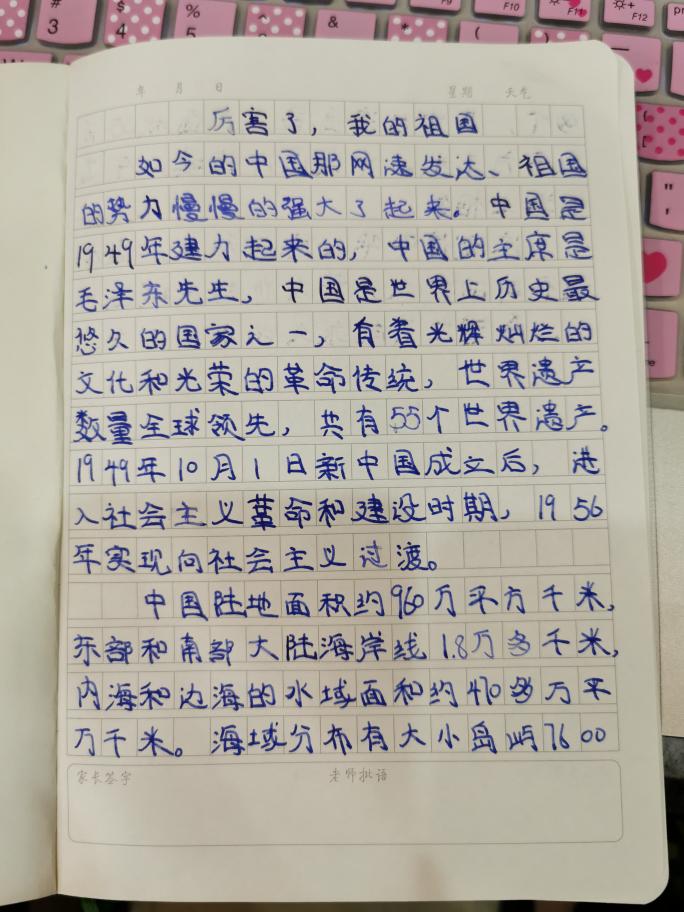 # 3
$ 4
% 5
&
F10
F11
F12
年 月 日 星期 天气
厉害了，我的祖国
如今的中国那网速发达、祖国
的势力慢慢的强大了起来。中国是
1949年建力起来的，中国的主席是
毛泽东先生，中国是世界上历史最
悠久的国家之一，有着光辉灿烂的
文化和光荣的革命传统，世界遗产
数量全球领先，共有55个世界遗产。
1949年10月1日新中国成立后，进
入社会主义革命和建设时期，1956
年实现向社会主义过渡。
中国陆地面积约960万平方千米，
东部和南部大陆海岸线1.8万多千米，
内海和边海的水域面和约470多万平
万千米。海域分布有大小岛屿7600
家长签字 老师批语